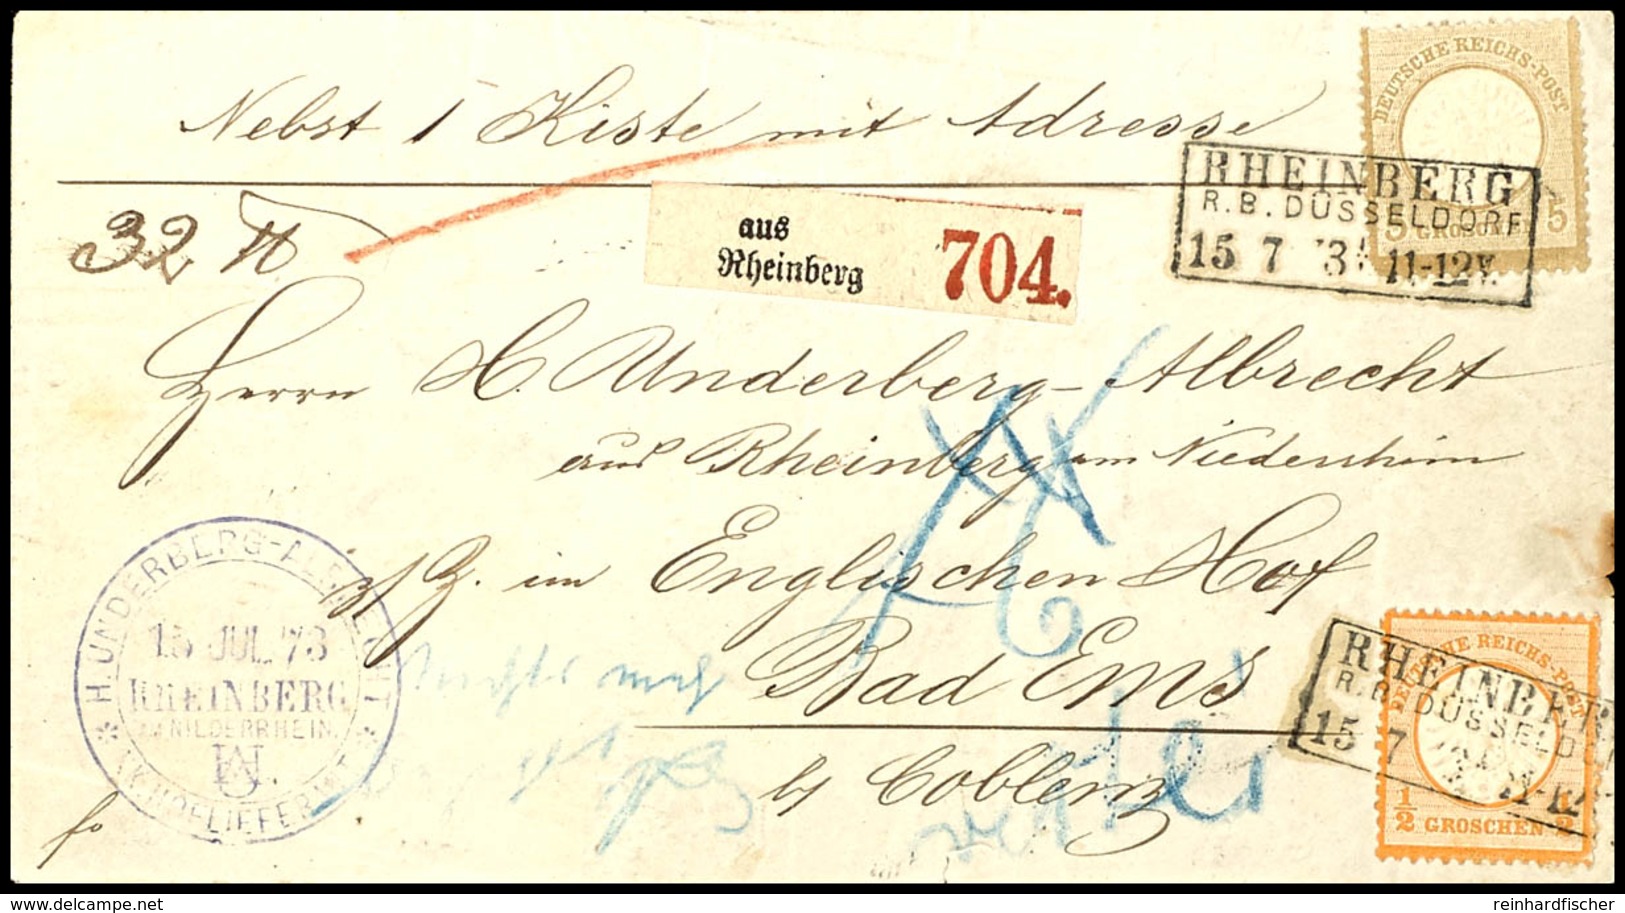 DEUTSCHE REICHS-POST
5 GROSCHEN 5
Nebst 1 Kiste mit Adresse
RHEINBERG
R.B. DÜSSELDORF
15 7 73 11-12V.
32 ℔
aus
Rheinberg
704.
Herrn H. Underberg-Albrecht
aus Rheinberg am Niederrhein
z/Z. im Englischen Hof
Bad Ems
by Coblenz
fo
H. UNDERBERG-ALBRECHT
15 JUL. 73
RHEINBERG
AM NIEDERRHEIN.
K.K. HOFLIEFERANT
DEUTSCHE REICHS-POST
RHEINBER
R.B. DÜSSELDO
15 7
1/2 GROSCHEN 1/2
www.delcampe.net
reinhardfischer